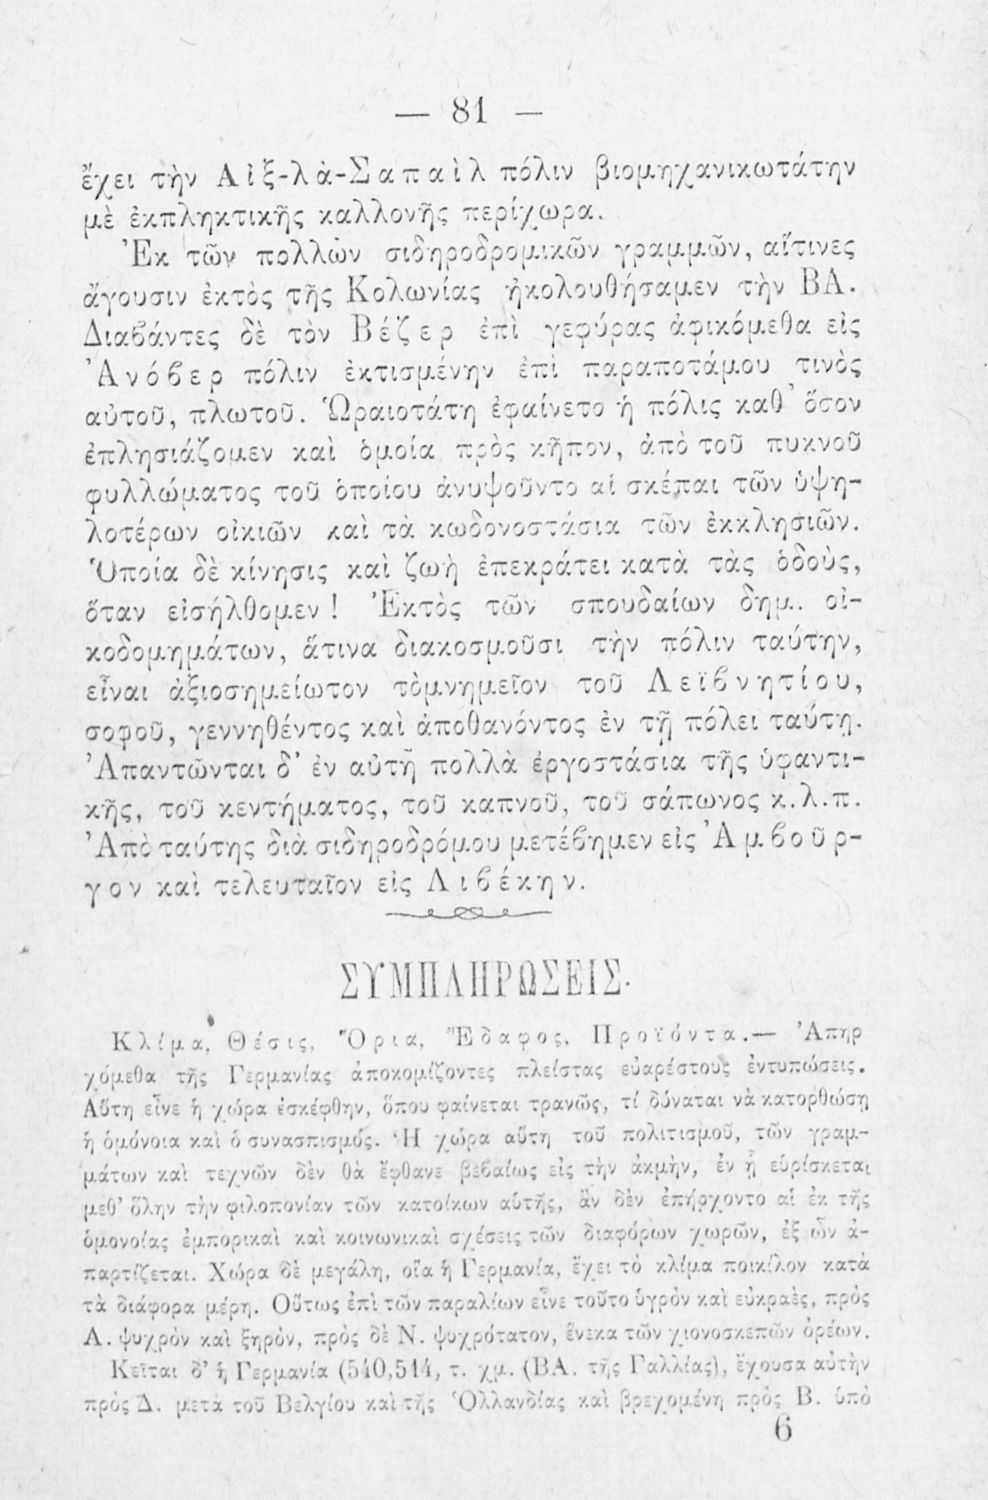 — 81 —
ἔχει τὴν Αἰξ-λὰ-Σαπαὶλ πόλιν βιομηχανικωτάτην
μὲ ἐκπληκτικῆς καλλονῆς περίχωρα.
Ἐκ τῶν πολλῶν σιδηροδρομικῶν γραμμῶν, αἵτινες
ἄγουσιν ἐκτὸς τῆς Κολωνίας ἠκολουθήσαμεν τὴν ΒΑ.
Διαβάντες δὲ τὸν Βέζερ ἐπὶ γεφύρας ἀφικόμεθα εἰς
Ἀνόβερ πόλιν ἐκτισμένην ἐπὶ παραποτάμου τινὸς
αὐτοῦ, πλωτοῦ. Ὡραιοτάτη ἐφαίνετο ἡ πόλις καθ' ὅσον
ἐπλησιάζομεν καὶ ὁμοία πρὸς κῆπον, ἀπὸ τοῦ πυκνοῦ
φυλλώματος τοῦ ὁποίου ἀνυψοῦντο αἱ σκέπαι τῶν ὑψη-
λοτέρων οἰκιῶν καὶ τὰ κωδονοστάσια τῶν ἐκκλησιῶν.
Ὁποία δὲ κίνησις καὶ ζωὴ ἐπεκράτει κατὰ τὰς ὁδοὺς,
ὅταν εἰσήλθομεν! Ἐκτὸς τῶν σπουδαίων δημ. οἰ-
κοδομημάτων, ἅτινα διακοσμοῦσι τὴν πόλιν ταύτην,
εἶναι ἀξιοσημείωτον τὸ μνημεῖον τοῦ Λεϊβνητίου,
σοφοῦ, γεννηθέντος καὶ ἀποθανόντος ἐν τῇ πόλει ταύτῃ.
Ἀπαντῶνται δ' ἐν αὐτῇ πολλὰ ἐργοστάσια τῆς ὑφαντι-
κῆς, τοῦ κεντήματος, τοῦ καπνοῦ, τοῦ σάπωνος κ.λ.π.
Ἀπὸ ταύτης διὰ σιδηροδρόμου μετέβημεν εἰς Ἀμβοῦρ-
γον καὶ τελευταῖον εἰς Λιβέκην.
ΣΥΜΠΛΗΡΩΣΕΙΣ.
Κλίμα, Θέσις, Ὅρια, Ἔδαφος, Προϊόντα.— Ἀπηρ
χόμεθα τῆς Γερμανίας ἀποκομίζοντες πλείστας εὐαρέστους ἐντυπώσεις.
Αὕτη εἶνε ἡ χώρα ἐσκέφθην, ὅπου φαίνεται τρανῶς, τί δύναται νὰ κατορθώσῃ
ἡ ὁμόνοια καὶ ὁ συνασπισμός. Ἡ χώρα αὕτη τοῦ πολιτισμοῦ, τῶν γραμ-
μάτων καὶ τεχνῶν δὲν θὰ ἔφθανε βεβαίως εἰς τὴν ἀκμὴν, ἐν ᾗ εὑρίσκεται
μεθ' ὅλην τὴν φιλοπονίαν τῶν κατοίκων αὑτῆς, ἂν δὲν ἐπήρχοντο αἱ ἐκ τῆς
ὁμονοίας ἐμπορικαὶ καὶ κοινωνικαὶ σχέσεις τῶν διαφόρων χωρῶν, ἐξ ὧν ἀ-
παρτίζεται. Χώρα δὲ μεγάλη, οἵα ἡ Γερμανία, ἔχει τὸ κλίμα ποικίλον κατὰ
τὰ διάφορα μέρη. Οὕτως ἐπὶ τῶν παραλίων εἶνε τοῦτο ὑγρὸν καὶ εὐκραὲς, πρὸς
Α. ψυχρὸν καὶ ξηρὸν, πρὸς δὲ Ν. ψυχρότατον, ἕνεκα τῶν χιονοσκεπῶν ὀρέων.
Κεῖται δ' ἡ Γερμανία (540,514, τ. χμ. (ΒΑ. τῆς Γαλλίας), ἔχουσα αὐτὴν
πρὸς Δ. μετὰ τοῦ Βελγίου καὶ τῆς Ὁλλανδίας καὶ βρεχομένη πρὸς Β. ὑπὸ
6